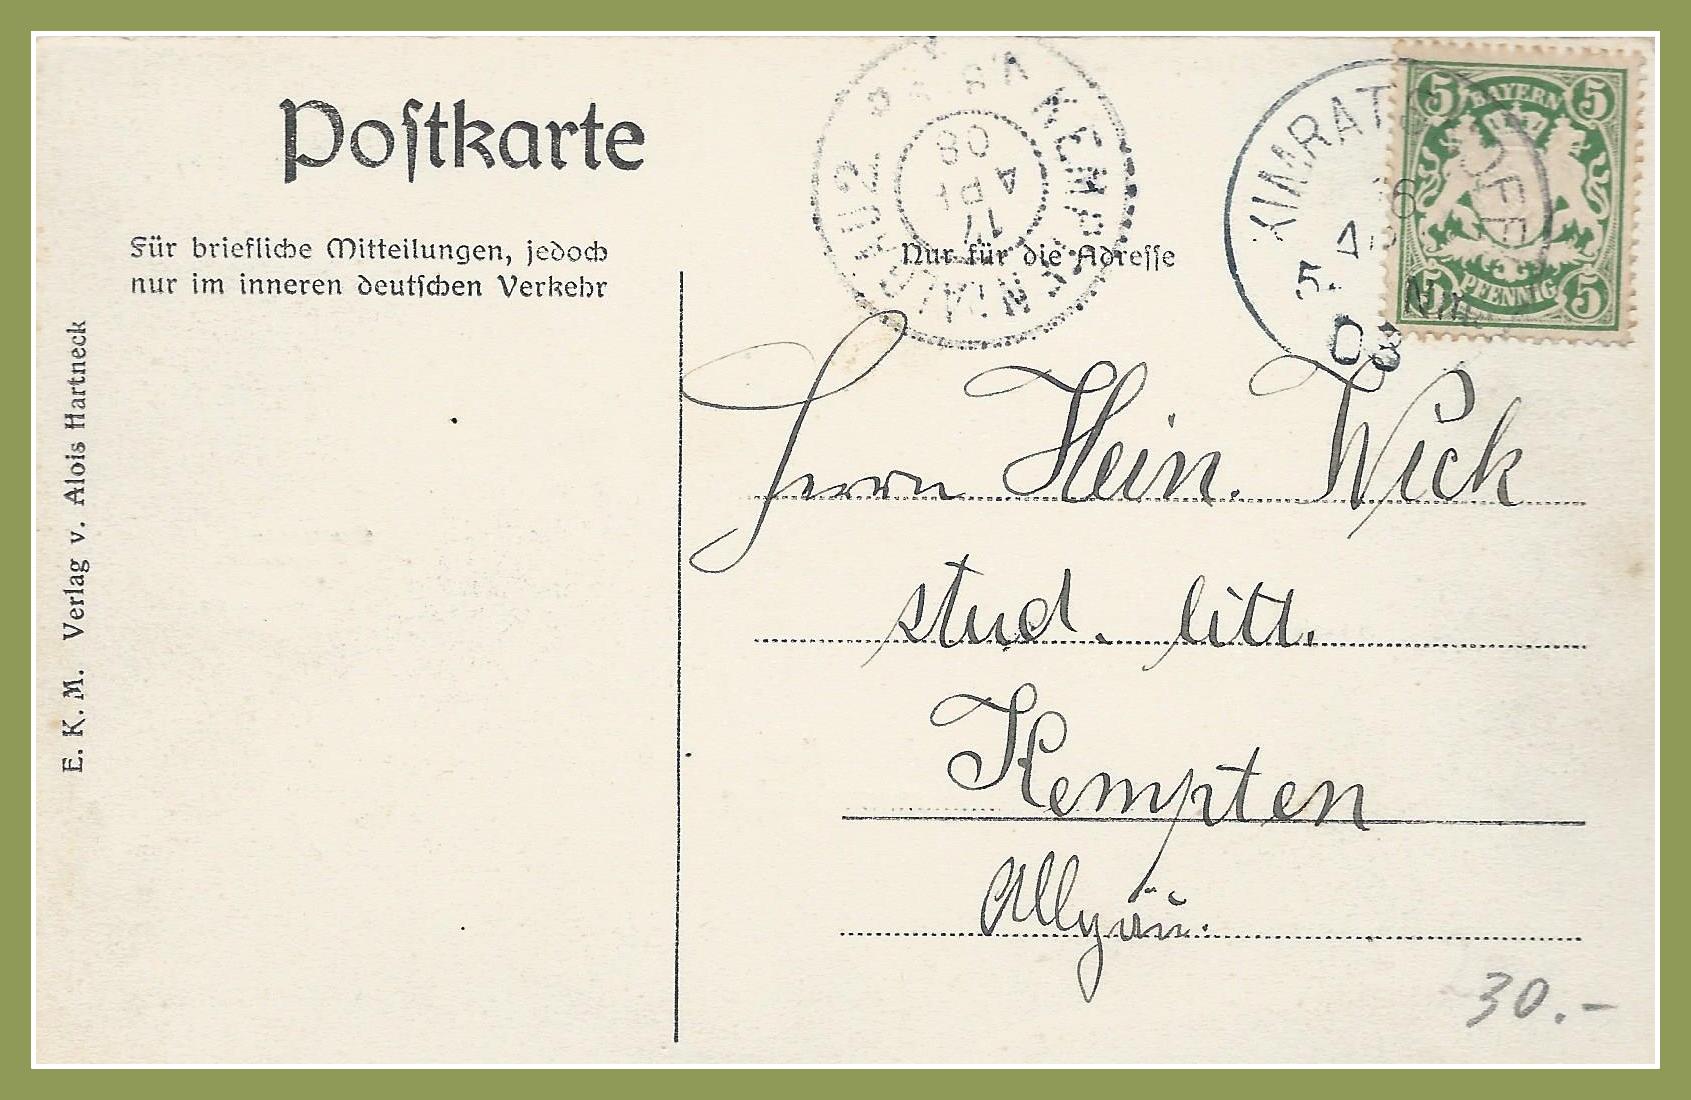 Postkarte
Für briefliche Mitteilungen, jedoch
nur im inneren deutschen Verkehr
E. K. M. Verlag v. Alois Hartneck
Nur für die Adresse
KEMPTEN
17
APR
08
KIMRATSHOFEN
16
AP
5 Nm.
08
5 BAYERN 5
5 PFENNIG 5
Herrn Hein. Wick
stud. litt.
Kempten
Allgäu.
30.-